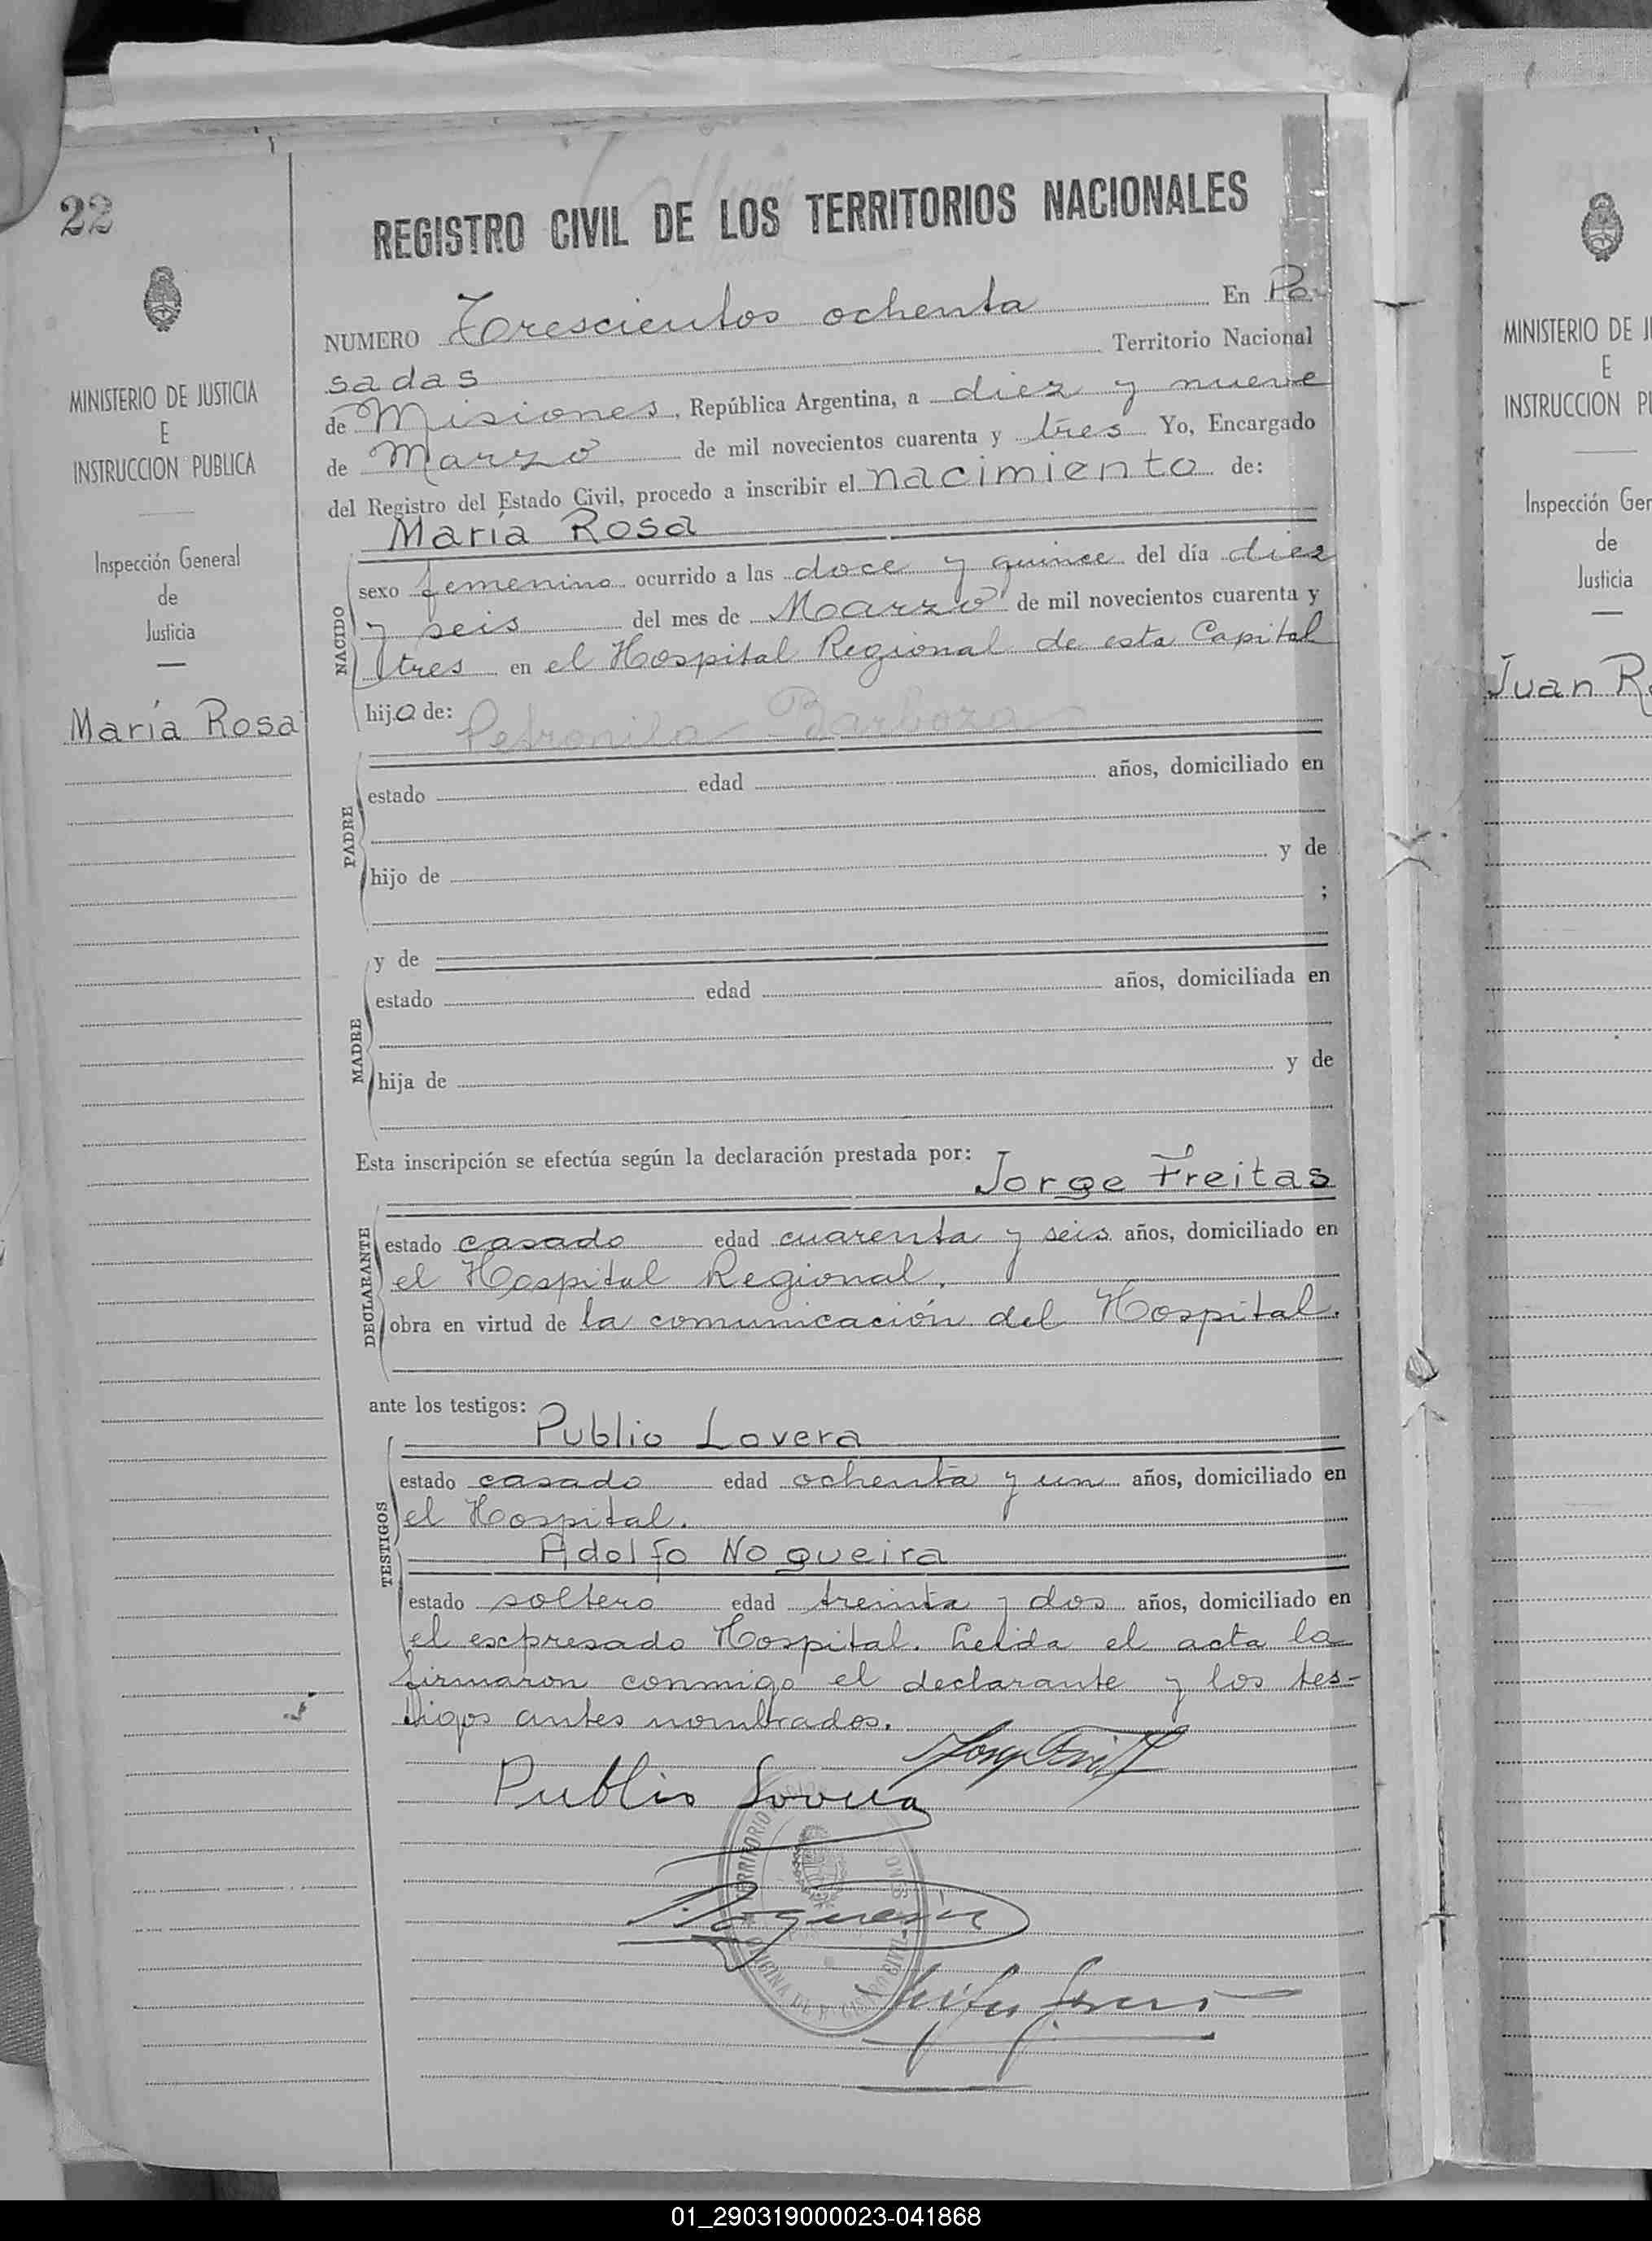 22
MINISTERIO DE JUSTICIA
E
INSTRUCCION PUBLICA
Inspección General
de
Justicia
María Rosa
REGISTRO CIVIL DE LOS TERRITORIOS NACIONALES
NUMERO Trescientos ochenta En Po
sadas Territorio Nacional
de Misiones, República Argentina, a diez y nueve
de Marzo de mil novecientos cuarenta y tres Yo, Encargado
del Registro del Estado Civil, procedo a inscribir el nacimiento de:
María Rosa
NACIDO
sexo femenino ocurrido a las doce y quince del día diez
y seis del mes de Marzo de mil novecientos cuarenta y
tres en el Hospital Regional de esta Capital
hija de: Petronila Barboza
PADRE
estado edad años, domiciliado en
hijo de y de
;
y de
MADRE
estado edad años, domiciliada en
hija de y de
Esta inscripción se efectúa según la declaración prestada por:
Jorge Freitas
DECLARANTE
estado casado edad cuarenta y seis años, domiciliado en
el Hospital Regional.
obra en virtud de la comunicación del Hospital.
ante los testigos:
Publio Lovera
TESTIGOS
estado casado edad ochenta y un años, domiciliado en
el Hospital.
Adolfo Nogueira
estado soltero edad treinta y dos años, domiciliado en
el escpresado Hospital. Leida el acta la
firmaron conmigo el declarante y los tes-
tigos antes nombrados.
Publio Lovera
Nogueira
MINISTERIO DE J
E
INSTRUCCION P
Inspección Gen
de
Justicia
Juan R
01_290319000023-041868